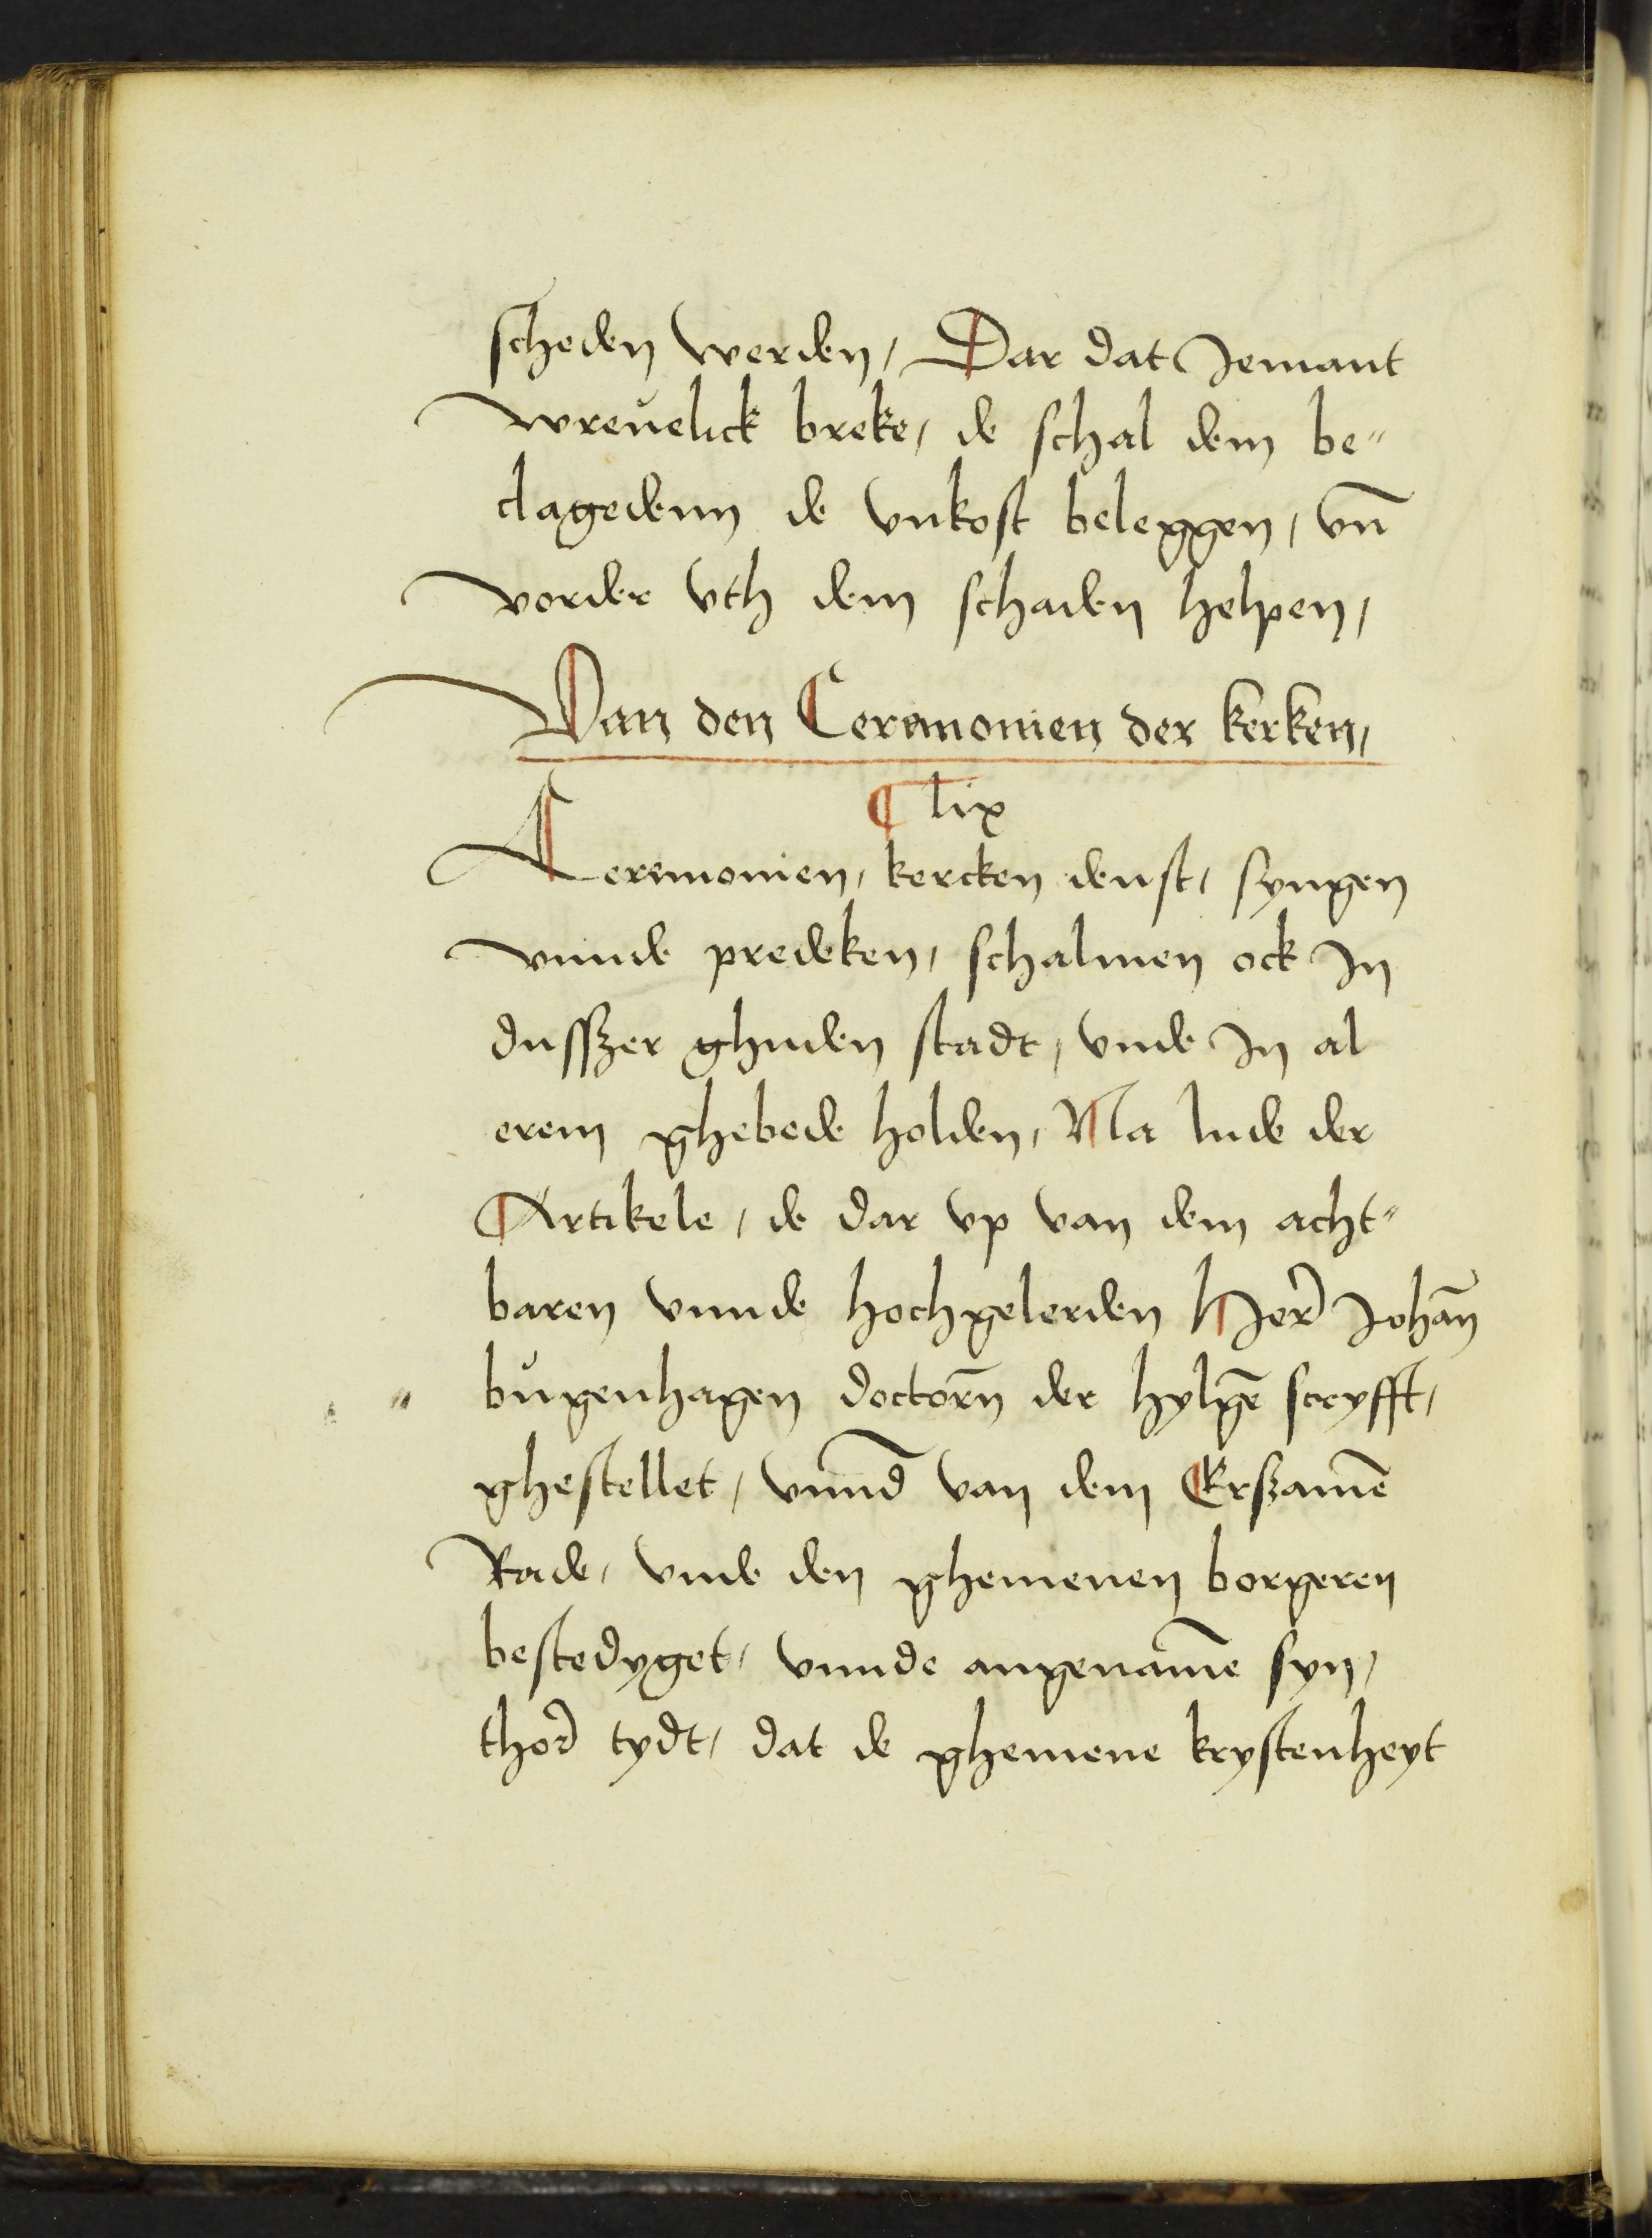 scheden werden, Dar dat Jemant
wreuelick breke, de schal dem be-
clagedenn de vnkost beleggen, vn̄
vorder vth dem schaden helpen,
Van den Ceremonien der kerken,
¶ lix
Ceremonien, kercken denst, syngen
vnnde predeken, schalmen ock in
dusszer ghuden stadt, vnde in al
erem ghebede holden, Na lude der
Artikele, de dar vp van dem acht-
baren vnnde hochgelerden Her Johan̄
bugenhagen doctorn̄ der hylgē scryfft,
ghestellet, vnnd van dem Erszamē
Rade, vnde den ghemenen borgeren
bestedyget, vnnde angename syn,
thor tydt, dat de ghemene krystenheyt